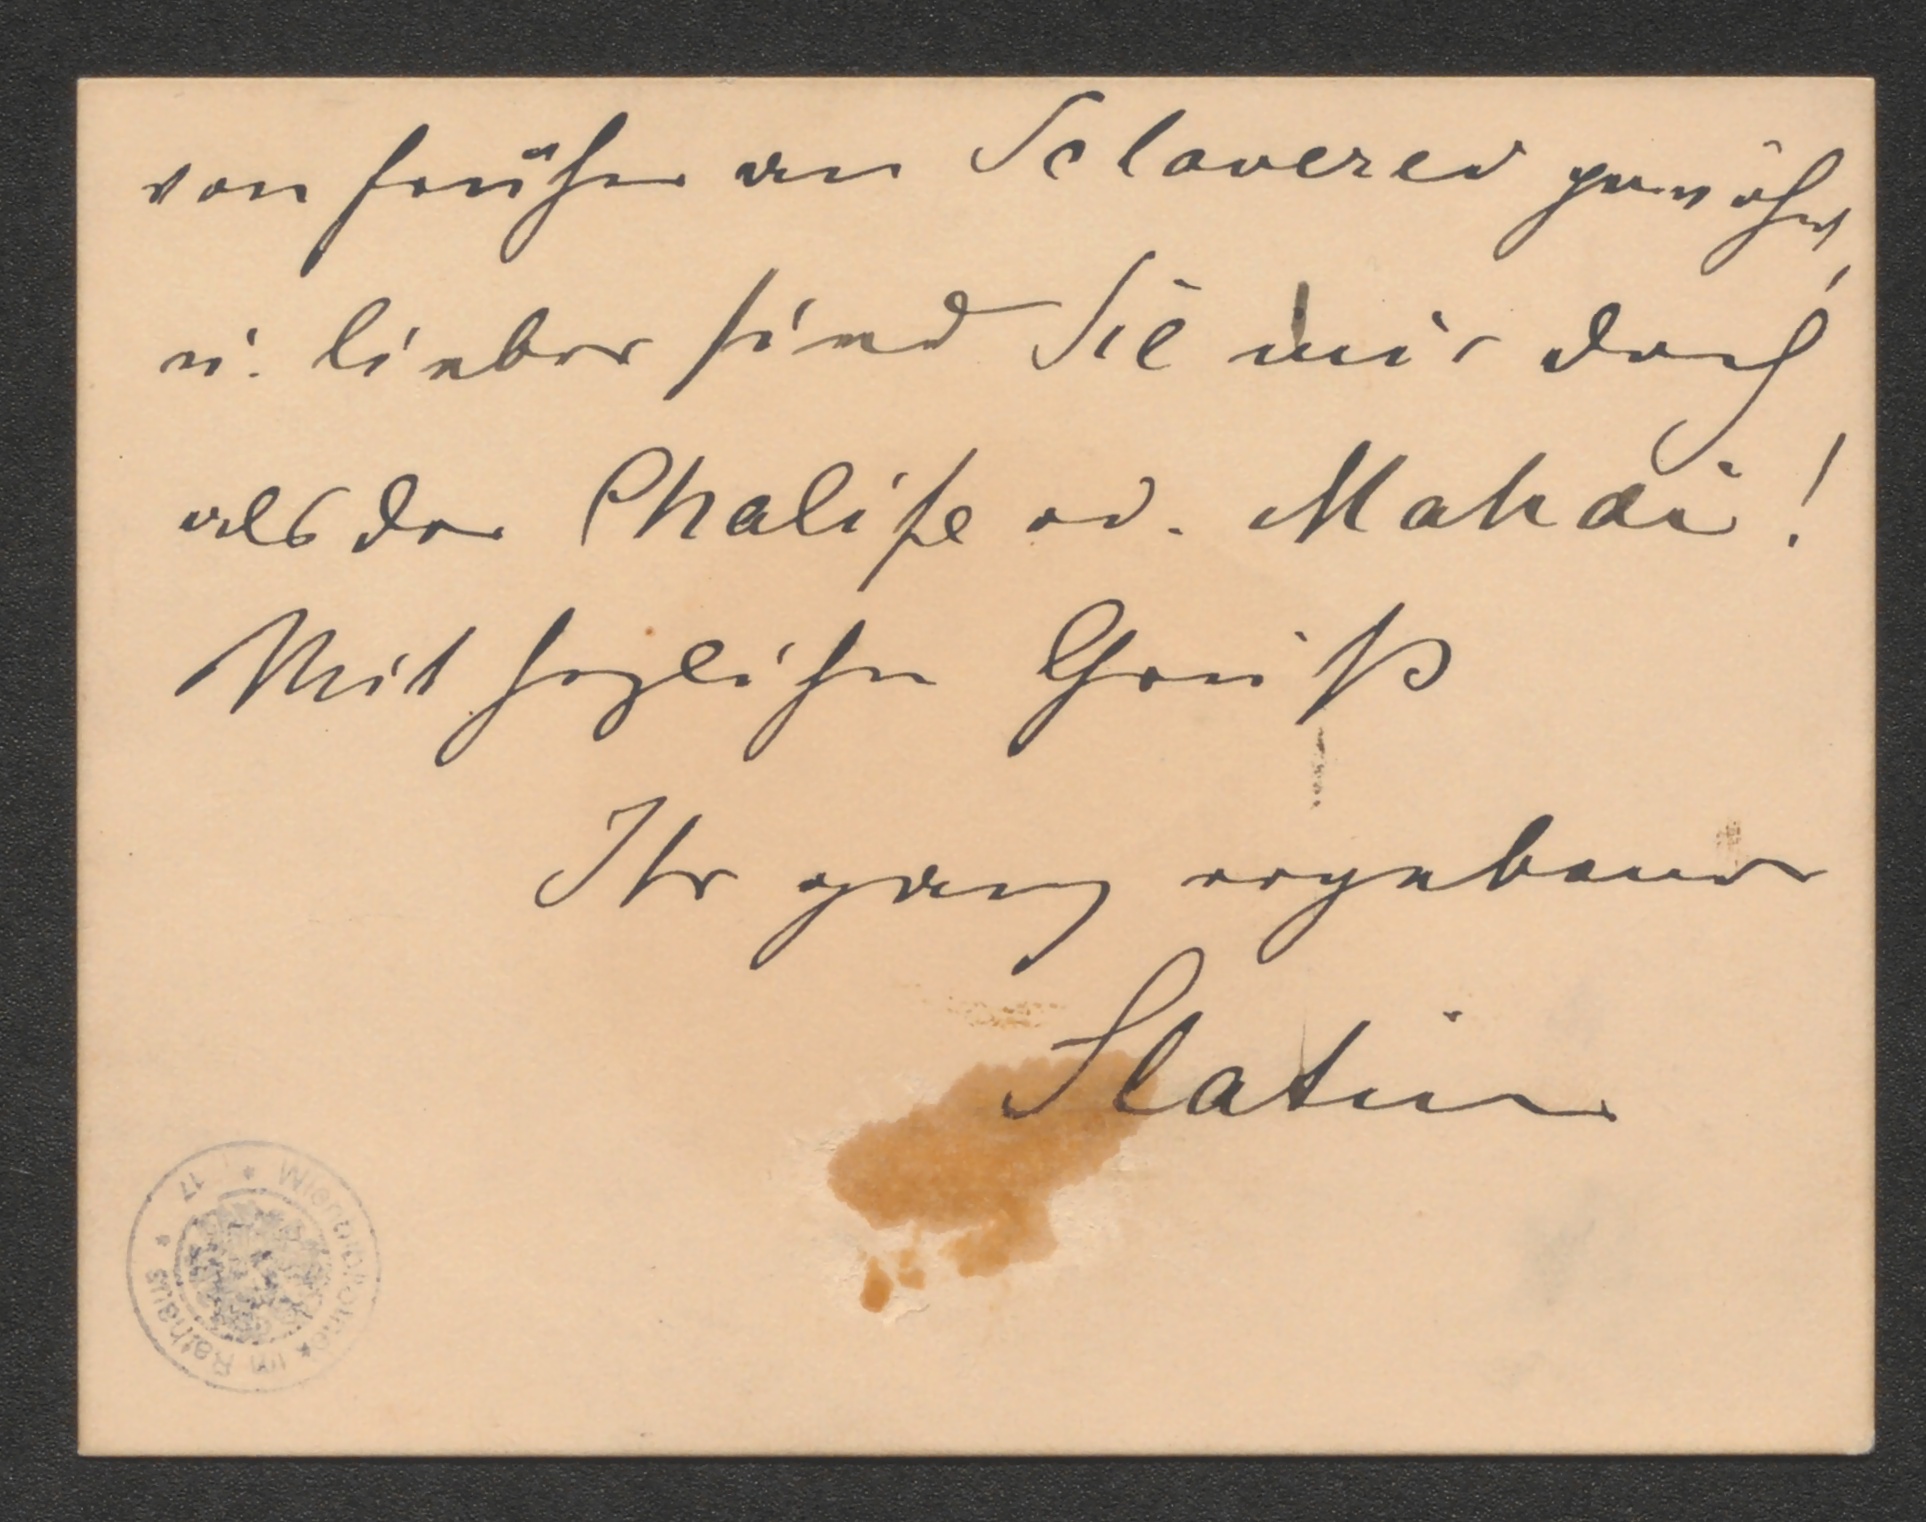 von früher an Sclaverei gewöhnt,
u. lieber sind Sie mir doch
als der Chalife od. Mahdi!
Mit herzlichen Gruß
Ihr ganz ergebener
Slatin
Wienbibliothek im Rathaus